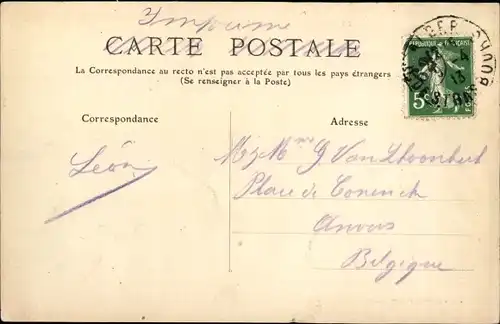 Imprimé
CARTE POSTALE
La Correspondance au recto n'est pas acceptée par tous les pays étrangers
(Se renseigner à la Poste)
Correspondance
Adresse
REPUBLIQUE FRANÇAISE
5c
13
Léon
M & Mme G Van
Place de
Anvers
Belgique